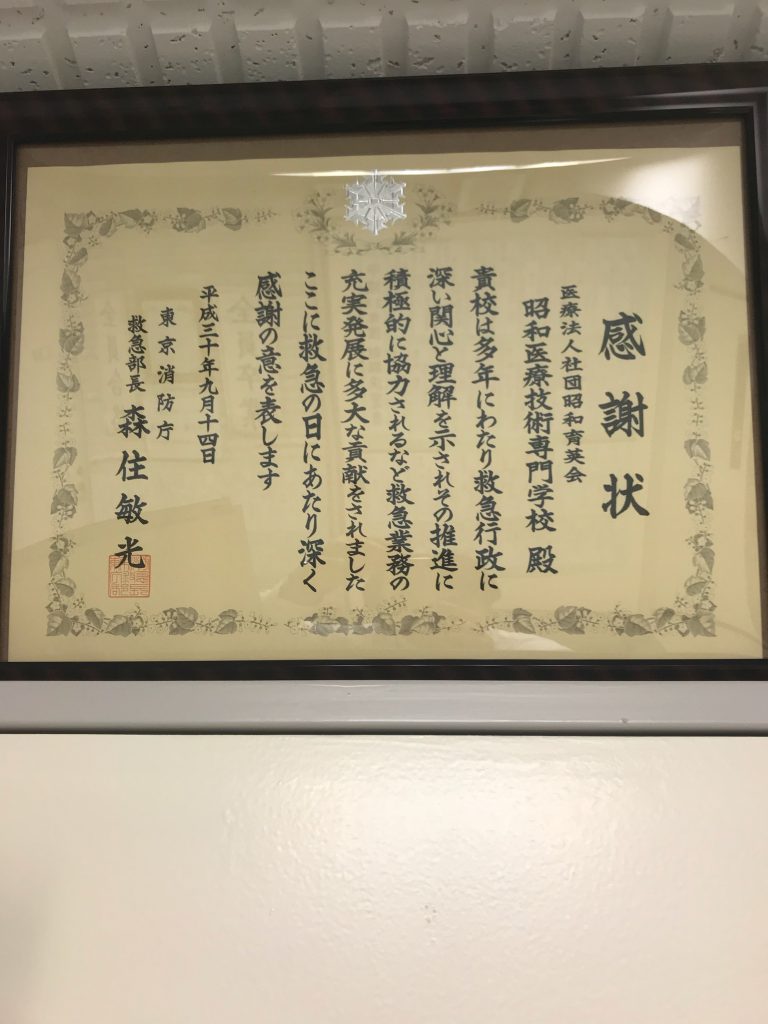 感謝状
医療法人社団昭和育英会
昭和医療技術専門学校 殿
貴校は多年にわたり救急行政に
深い関心と理解を示されその推進に
積極的に協力されるなど救急業務の
充実発展に多大な貢献をされました
ここに救急の日にあたり深く
感謝の意を表します
平成三十年九月十四日
東京消防庁
救急部長 森住敏光